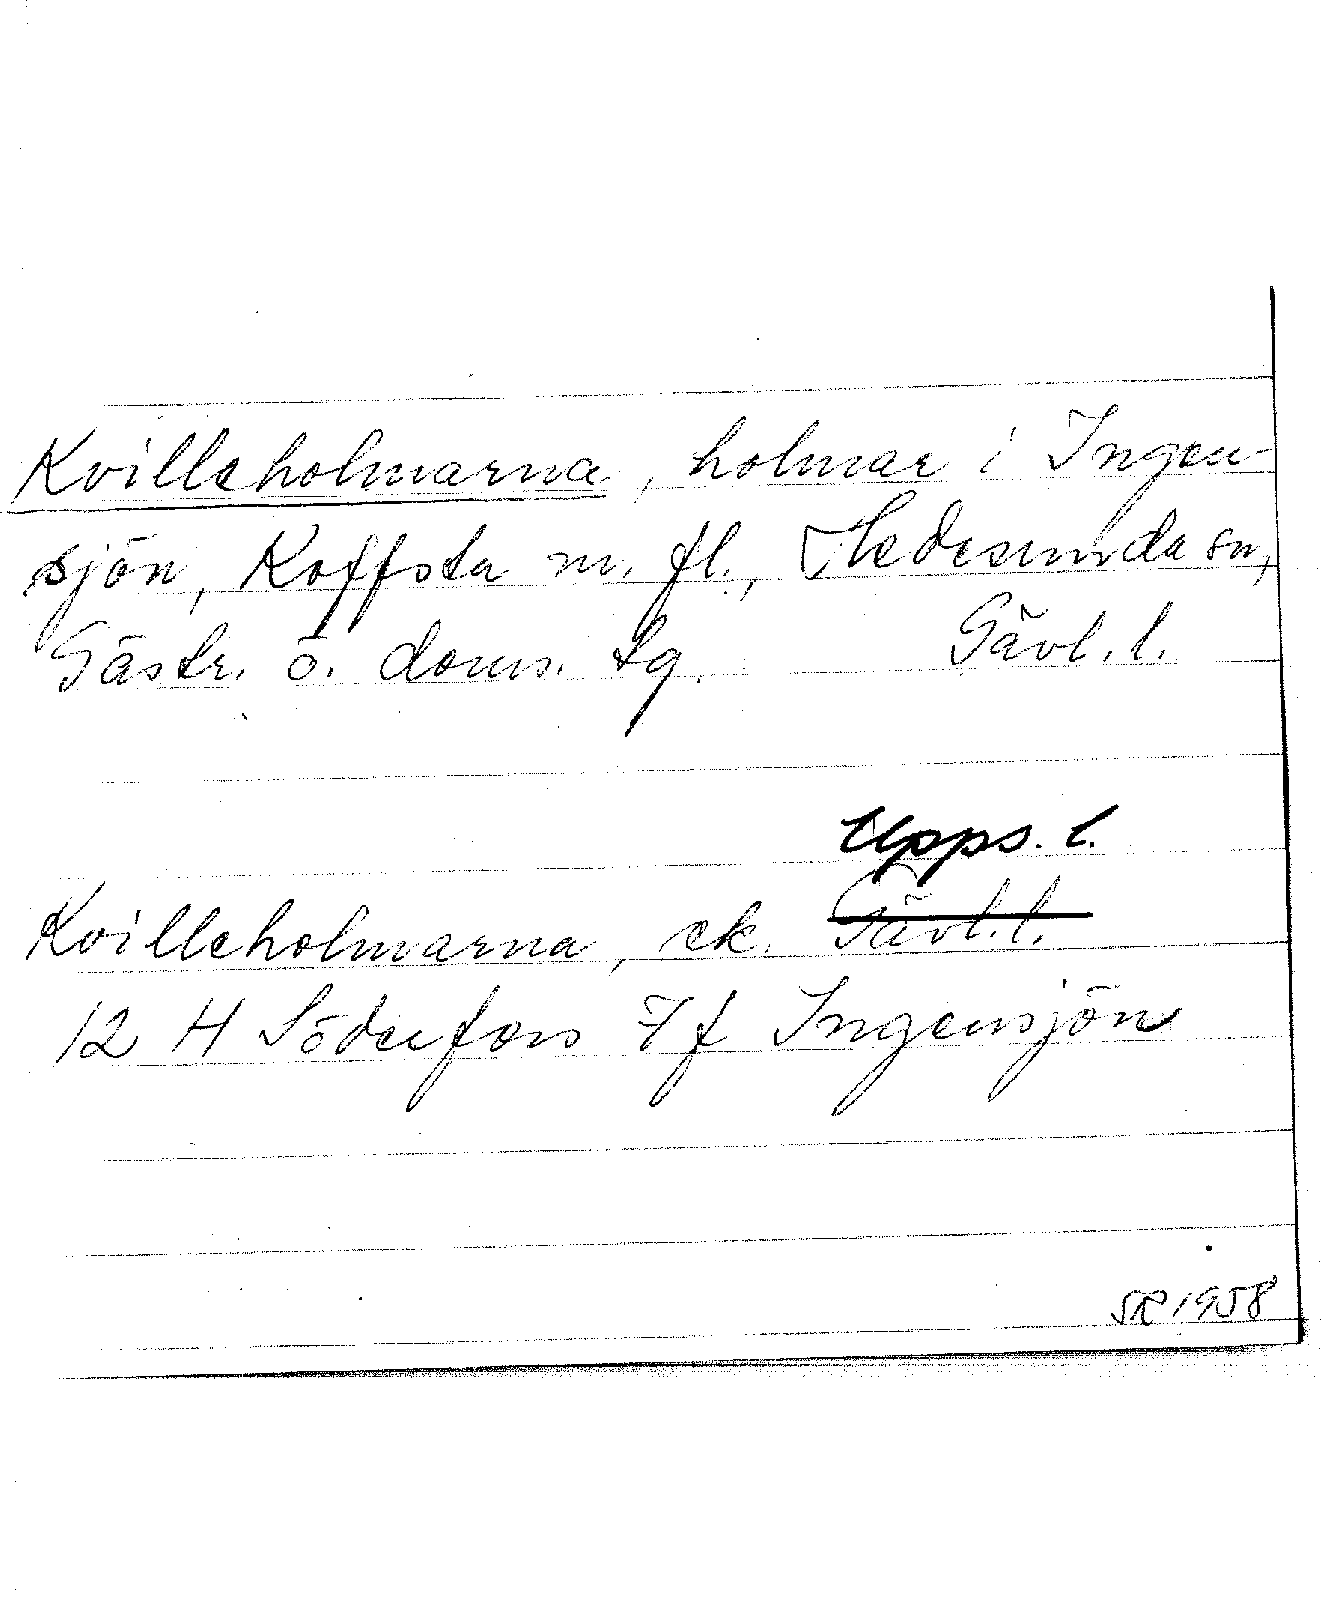 Kvilleholmarna, holmar i Ingen-
sjön, Koffsta m. fl., Hedesunda sn,
Gästr. ö. doms. tg. Gävl. l.
Upps. l.
Kvilleholmarna, ek. Gävl. l.
12 H Söderfors 7f Ingensjön
SR 1958